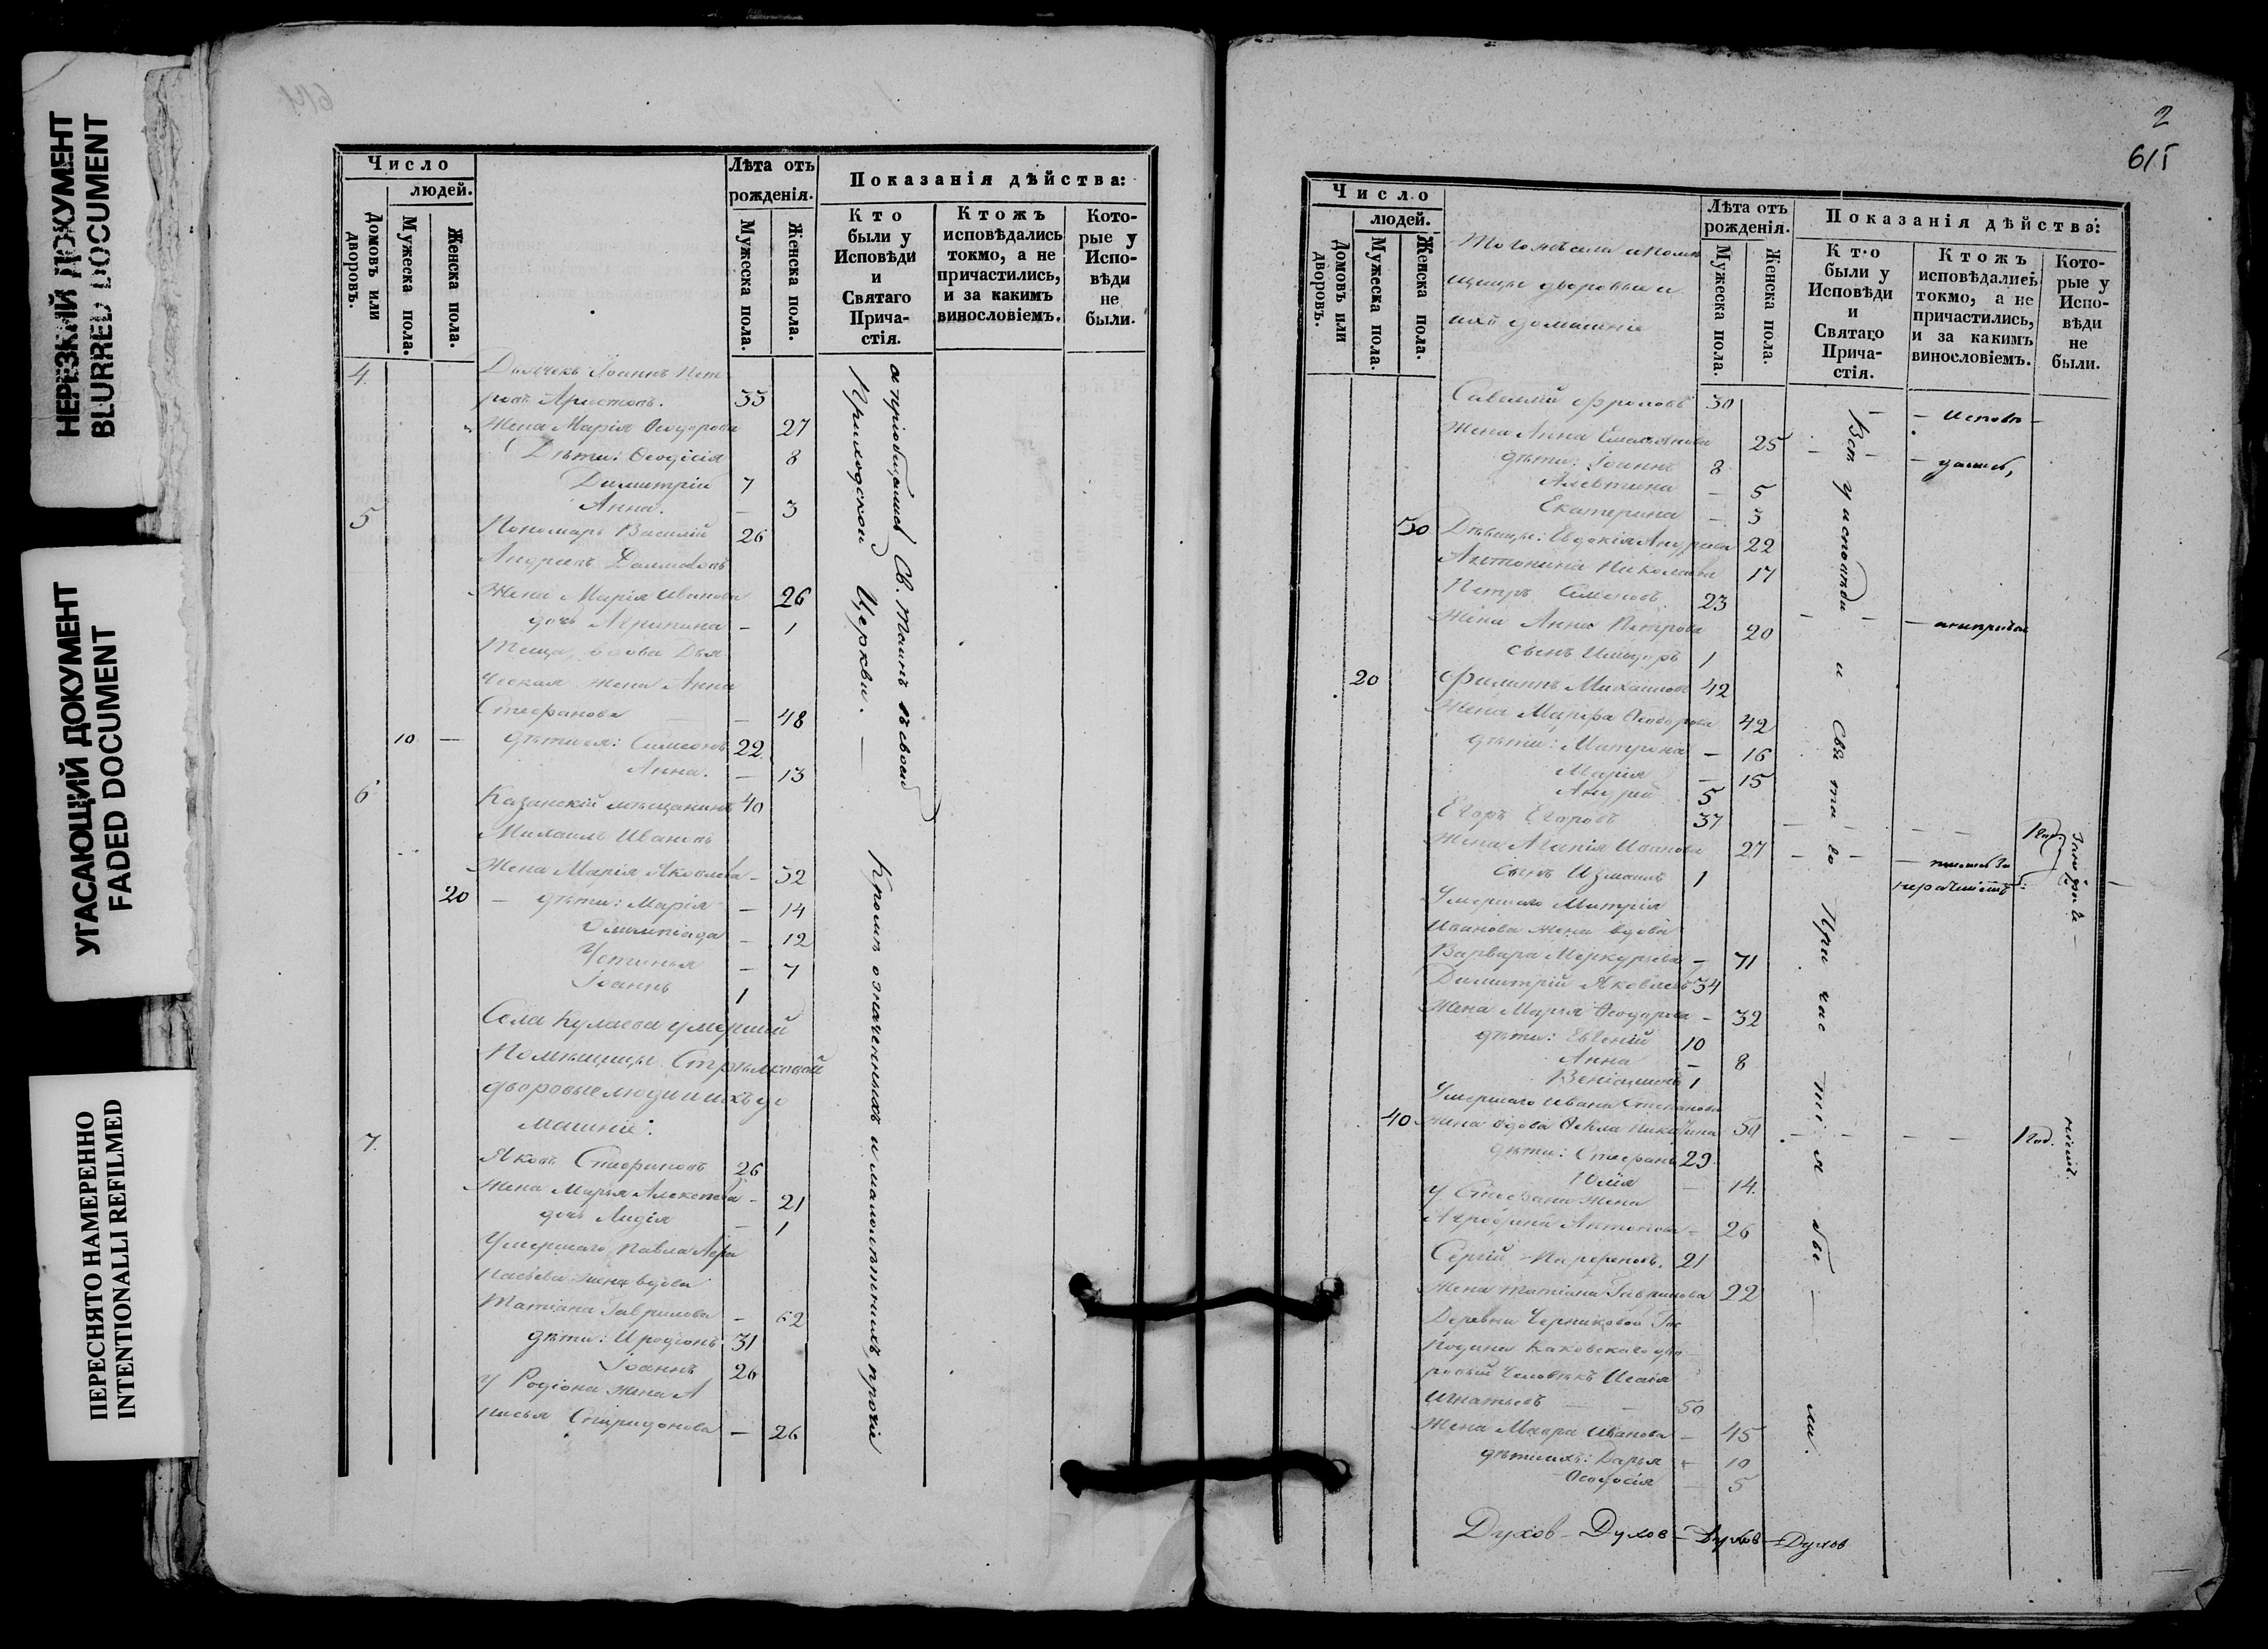 НЕРЕЗКИЙ ДОКУМЕНТ
BLURRED DOCUMENT
УГАСАЮЩИЙ ДОКУМЕНТ
FADED DOCUMENT
ПЕРЕСНЯТО НАМЕРЕННО
INTENTIONALLI REFILMED
Число
людей.
Домовъ или дворовъ.
Мужеска пола.
Женска пола.
Лѣта отъ рожденія.
Мужеска пола.
Женска пола.
Показанія дѣйства:
Кто были у Исповѣди и Святаго Прича-стія.
Ктожъ исповѣдались токмо, а не причастились, и за какимъ винословіемъ.
Кото-рые у Испо-вѣди не были.
4. Дьячекъ Іоаннъ Пет
ровъ Аристовъ. 33
Жена Марія Ѳеодорова 27
Дѣти: Ѳеодосія 8
Димитрій 7
Анна. — 3
5 Пономарь Василій 26
Андреевъ
Жена Марія Иванова 26
дочь Агрипина — 1
Теща вдова Дья
ческая жена Анна
Стефанова — 48
10 — дѣти ея: Симеонъ 22
Анна. — 13
6 Казанскій мѣщанинъ 40
Михаилъ Ивановъ
Жена Марія Яковлева — 32
20 — дѣти: Марія — 14
Олимпіада — 12
Устинья — 7
Іоаннъ 1
Села Кулаева умершей
Помѣщицы Стрѣлковой
дворовые люди и ихъ до
машніе:
7. Яковъ Стефановъ 26
Жена Марья Алексеева — 21
дочь Лидія — 1
Умершаго Павла Афа
насьева жена вдова
Татіана Гаврилова — 62
дѣти: Иродіонъ 31
Іоаннъ 26
У Родіона жена А
нисья Спиридонова — 26
а пріобщались Св. Таинъ въ своей
Приходской Церкви. —
Кромѣ означенныхъ и малолѣтнихъ, прочіе
2
615
Число
людей.
Домовъ или дворовъ.
Мужеска пола.
Женска пола.
Тогожъ села и помѣ
щицы дворовые и
ихъ домашніе
Лѣта отъ рожденія.
Мужеска пола.
Женска пола.
Показанія дѣйства:
Кто были у Исповѣди и Святаго Прича-стія.
Ктожъ исповѣдались токмо, а не причастились, и за какимъ винословіемъ.
Кото-рые у Испо-вѣди не были.
Савелій Фроловъ 30 — Исповѣ —
Жена Анна Емельянова 25
дѣти: Іоаннъ 8 — дались,
Алевтина — 5
Екатерина — 3
30 Дѣвицы: Евдокія Андреева 22
Антонина Николаева 17
Петръ Семеновъ 23
Жена Анна Петрова 20
сынъ Исидоръ 1
20 Филиппъ Михаиловъ 42
Жена Ѳеодорова 42
дѣти: Матрона — 16
Марія — 15
Андрей 5
Егоръ Егоровъ 37
Жена Агапія Иванова 27
сынъ Измаилъ 1
Умершаго Митрія
Иванова жена вдова
Варвара Меркурьева — 71
Димитрій Яковлевъ 34
Жена Марья Ѳеодорова — 32
дѣти: Евгеній 10
Анна — 8
Веніаминъ 1
Умершаго Ивана Степанова
40 Жена вдова Ѳекла Никитина 50
дѣти: Стефанъ 29
Юлія — 14.
У Стефана жена
Антонова — 26
Сергій 21
Жена Татіана Гаврилова 22
Деревни Черниковой Гос
подина Каховскаго дво
ровый человѣкъ Исаія
Игнатьевъ — 50
Жена Мавра Иванова — 45
дѣти ихъ: Дарья — 10
Ѳеодосія — 5
Всѣ у исповѣди и Святаго Причастія были.
Духов — Духов — Духов — Духов